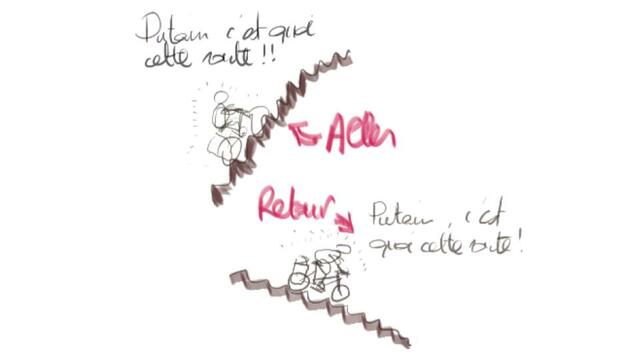 Putain c'est quoi
cette route !!
Aller
Retour
Putain, c'est
quoi cette route !